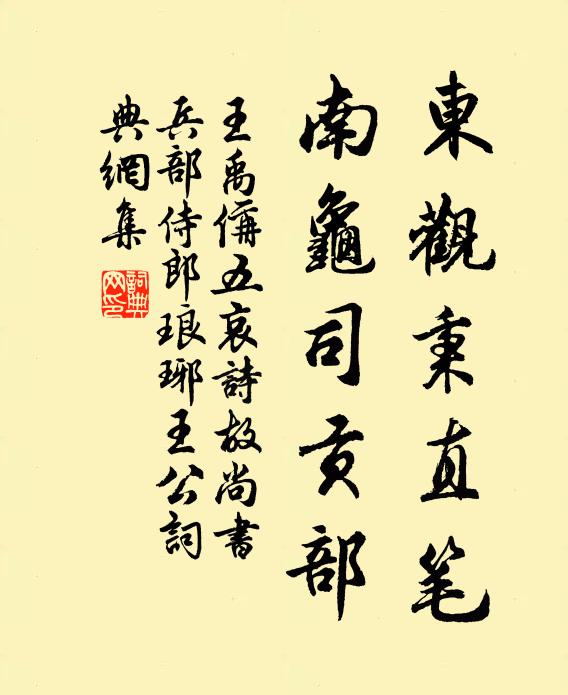 東觀秉直笔
南龜司貢部
王禹偁五哀詩故尚書
兵部侍郎琅琊王公詞
典網集
詞典网印